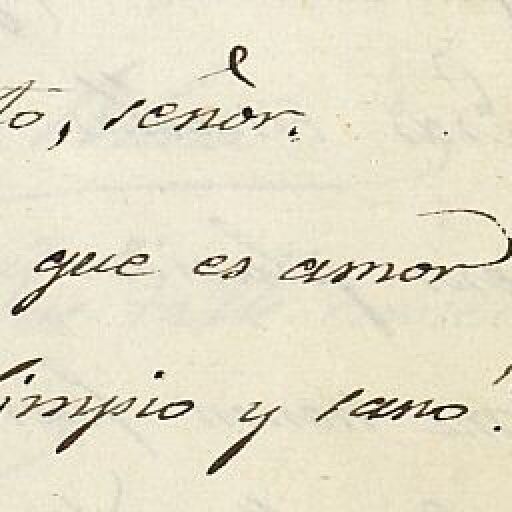 to, señor.
que es amor
limpio y sano!